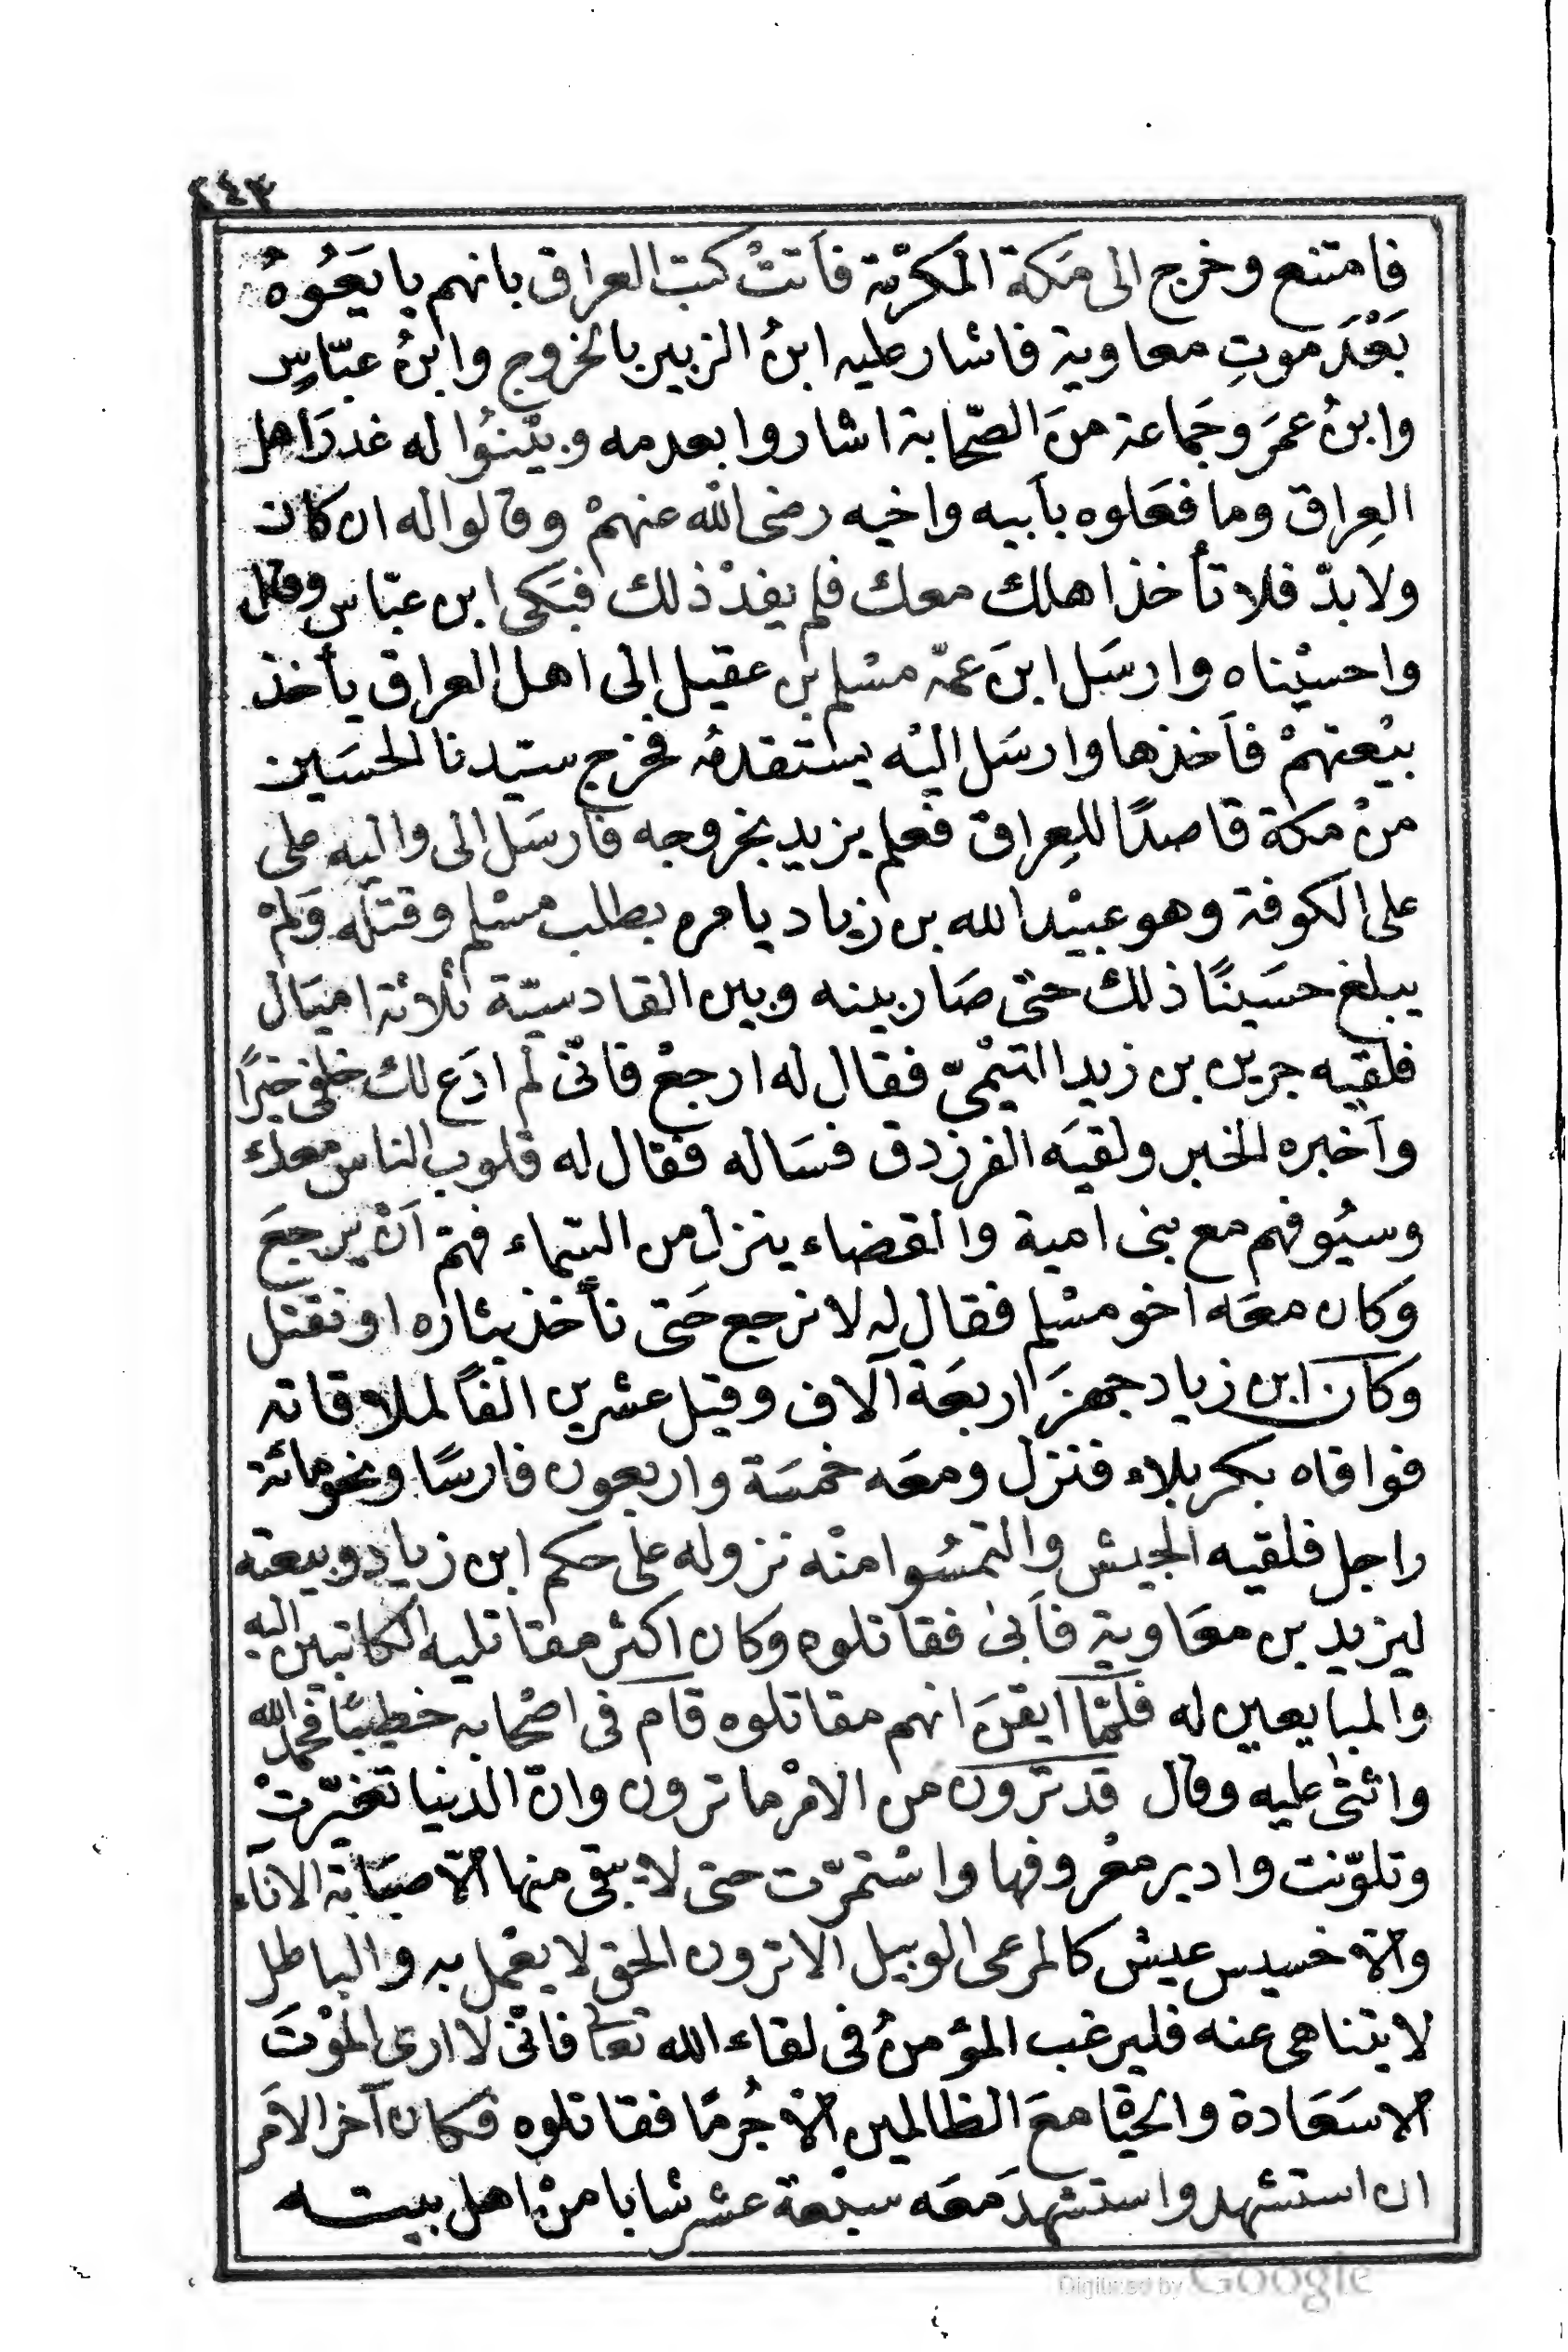 ٢٤٣
فامتنع وخرج الى مَكة المكرّمة فأتتْ كتب العراق بانهم بايَعُوهُ
بَعْدَ موتِ معاوية فاشار عليه ابنُ الزبير بالخروج وابنُ عبّاسٍ
وابنُ عمَر وجَماعة منَ الصّحابة اشاروا بعدمه وبيّنوُا له غدرَ اهل
العِراق وما فعَلوه بأبيه واخيه رضى الله عنهمْ وقالوا له ان كان
ولابدّ فلا تأخذ اهلك معك فلم يفدْ ذلك فبَكى ابن عبّاس وقال
واحسيْناه وارسَل ابنَ عمّه مسْلم بن عقيل الى اهل العراق يأخذ
بيْعتهمْ فأخذها وارسَل اليْه يستقدمُه فخرج سيّدنا الحسَين
منْ مكة قاصدًا للعِراق فعلم يزيد بخروجه فارسَل الى واليه على
على الكوفة وهو عبيْد الله بن زياد يامره بطلب مسْلم وقتله وَلمْ
يبلغ حسَينًا ذلك حتى صَار بينه وبين القادسيّة ثلاثة اميَال
فلقيه جرير بن زيد التيْمىّ فقال له ارجعْ فانّى لم ادَع لك خلفى خيرًا
وأخبره الخبر ولقيَه الفرزدق فسَاله فقال له قلوب الناس معك
وسيُوفهم مع بنى امية والقضاء ينزل من السّماء فهمّ اَنْ يرجعَ
وكان معَه اخو مسْلم فقال له لا نرجع حَتى نأخذ بثاره او نقتل
وكان ابن زياد جهزَ اربعَة آلاف وقيل عشرين الفًا لملاقاته
فوافاه بكربلاء فنزل ومعَه خمسَة واربعون فارسًا ونحو مائة
راجل فلقيه الجيش والتمسُوا منْه نزوله على حكم ابن زياد وبيعته
ليزيد بن معَاوية فأبىٰ فقاتلوه وكان اكثر مقاتليه الكاتبين اليه
والمبايعين له فلمّا ايقنَ انهم مقاتلوه قام فى اصْحابه خطيبًا فحمد الله
واثنىٰ عليه وقال قد ترَون من الامْر ما ترون وانّ الدنيا تغيّرتْ
وتلوّنت وادبر معْروفها واسْتمرّت حتى لا يبقى منها الّا صبَابة الانآء
والّا خسيس عيش كالمرعى الوبيل الا ترون الحق لا يعْمل به والباطل
لا يتناهى عنه فليرغب المؤمنُ فى لقاء الله تعالى فانّى لا ارى الموْتَ
الا سَعَادة والحيٰوة مَعَ الظالمين الّا جُرمًا فقاتلوه فكان آخر الامَر
ان استشهد واستشهدَ معَه سبْعة عشر شابا منْ اهل بيته
Digitized by Google